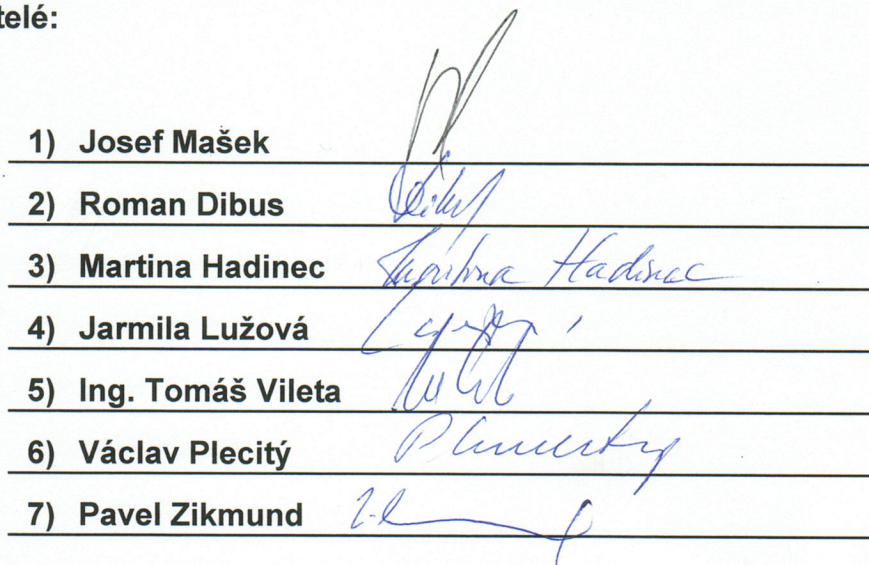 telé:
1) Josef Mašek
2) Roman Dibus
3) Martina Hadinec Martina Hadinec
4) Jarmila Lužová
5) Ing. Tomáš Vileta
6) Václav Plecitý
7) Pavel Zikmund